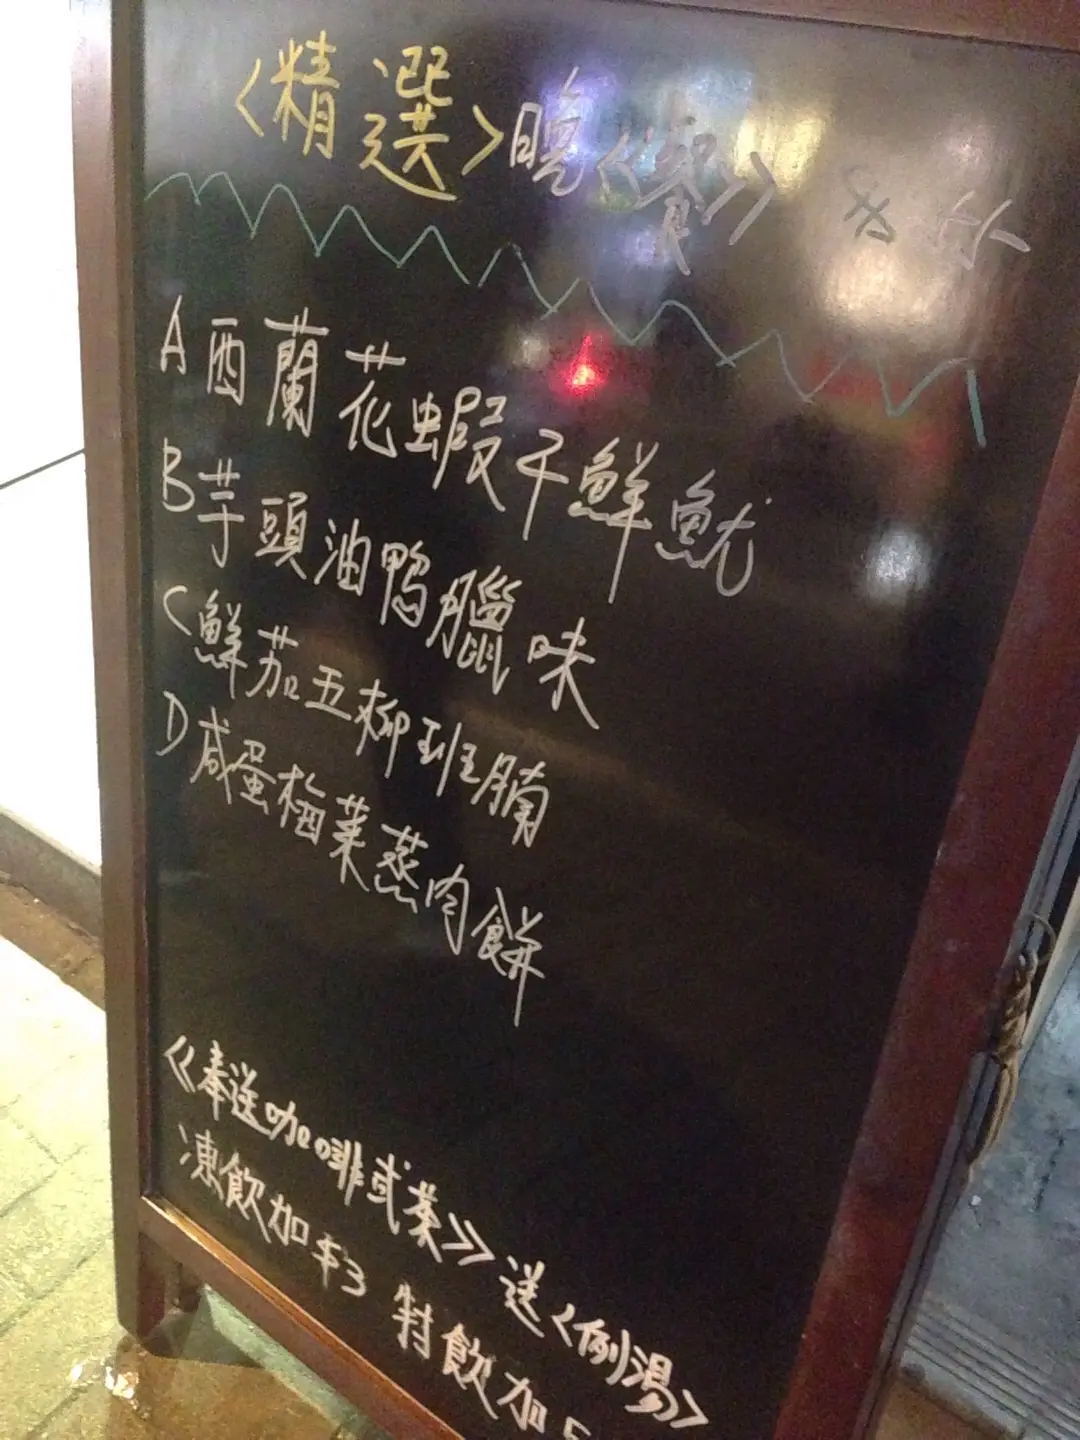 <精選>晚《餐》
A西蘭花蝦干鮮魷
B芋頭油鴨臘味
C鮮茄五柳班腩
D咸蛋梅菜蒸肉餅
《奉送咖啡或茶》送<例湯>
凍飲加$3 特飲加5